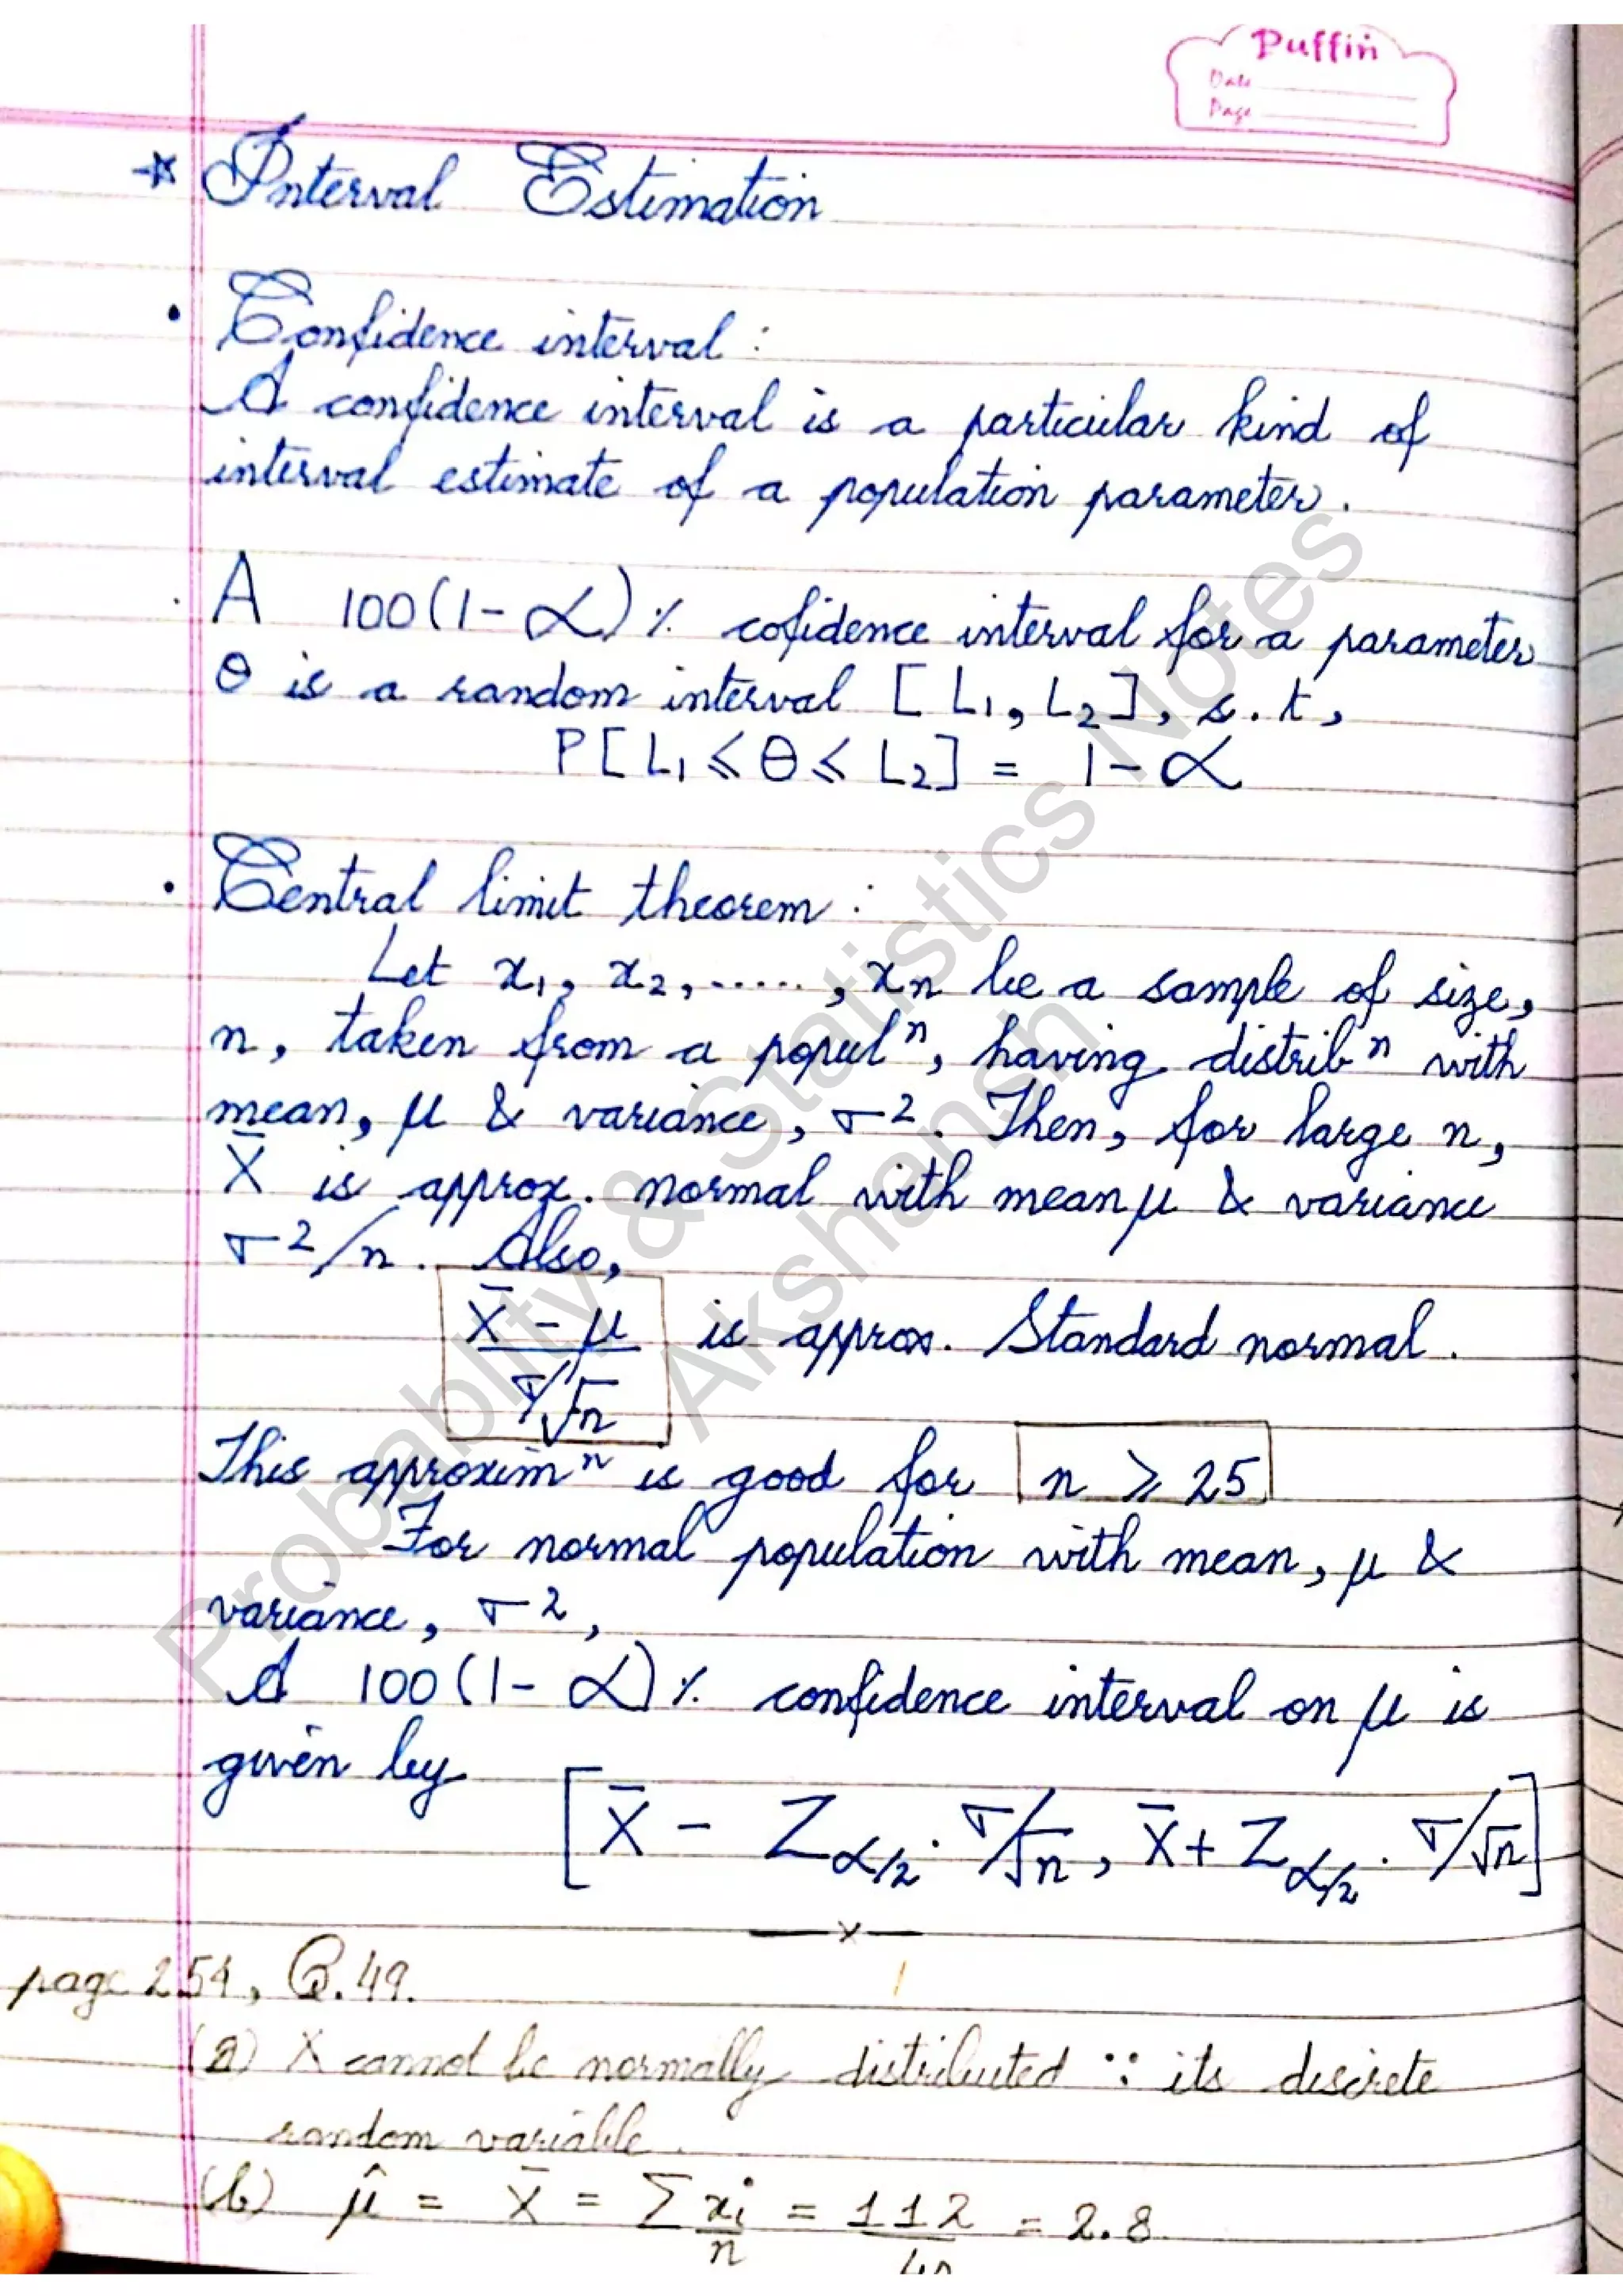 Puffin
Date
Page
* Interval Estimation
• Confidence interval :
A confidence interval is a particular kind of
interval estimate of a population parameter.
A 100(1-α)% cofidence interval for a parameter
θ is a random interval [L₁, L₂], s.t,
P[L₁ ≤ θ ≤ L₂] = 1-α
• Central limit theorem :
Let x₁, x₂, ....., xₙ be a sample of size,
n, taken from a populⁿ, having distribⁿ with
mean, μ & variance, σ². Then, for large n,
X̄ is approx. normal with mean μ & variance
σ²/n. Also,
X̄ - μ
σ/√n
is approx. Standard normal.
This approximⁿ is good for n ≥ 25
For normal population with mean, μ &
variance, σ²,
A 100(1-α)% confidence interval on μ is
given by
[X̄ - Z_α/2 . σ/√n, X̄ + Z_α/2 . σ/√n]
—x—
page 254, Q.49.
(a) X cannot be normally distributed ∵ its discrete
random variable.
(b) μ̂ = X̄ = Σ xᵢ/n = 112/40 = 2.8
Probablity & Statistics Notes
Akshansh